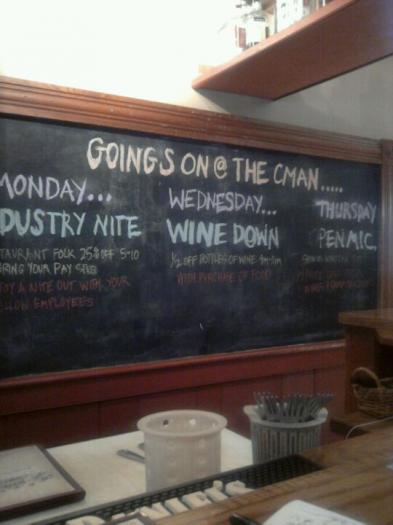 GOINGS ON @ THE CMAN.....
MONDAY...
DUSTRY NITE
TAURANT FOLK 25% OFF 5-10
BRING YOUR PAY STUB
JOY A NITE OUT WITH YOUR
LLOW EMPLOYEES
WEDNESDAY...
WINE DOWN
1/2 OFF BOTTLES OF WINE
WITH PURCHASE OF FOOD
THURSDAY
PEN MIC